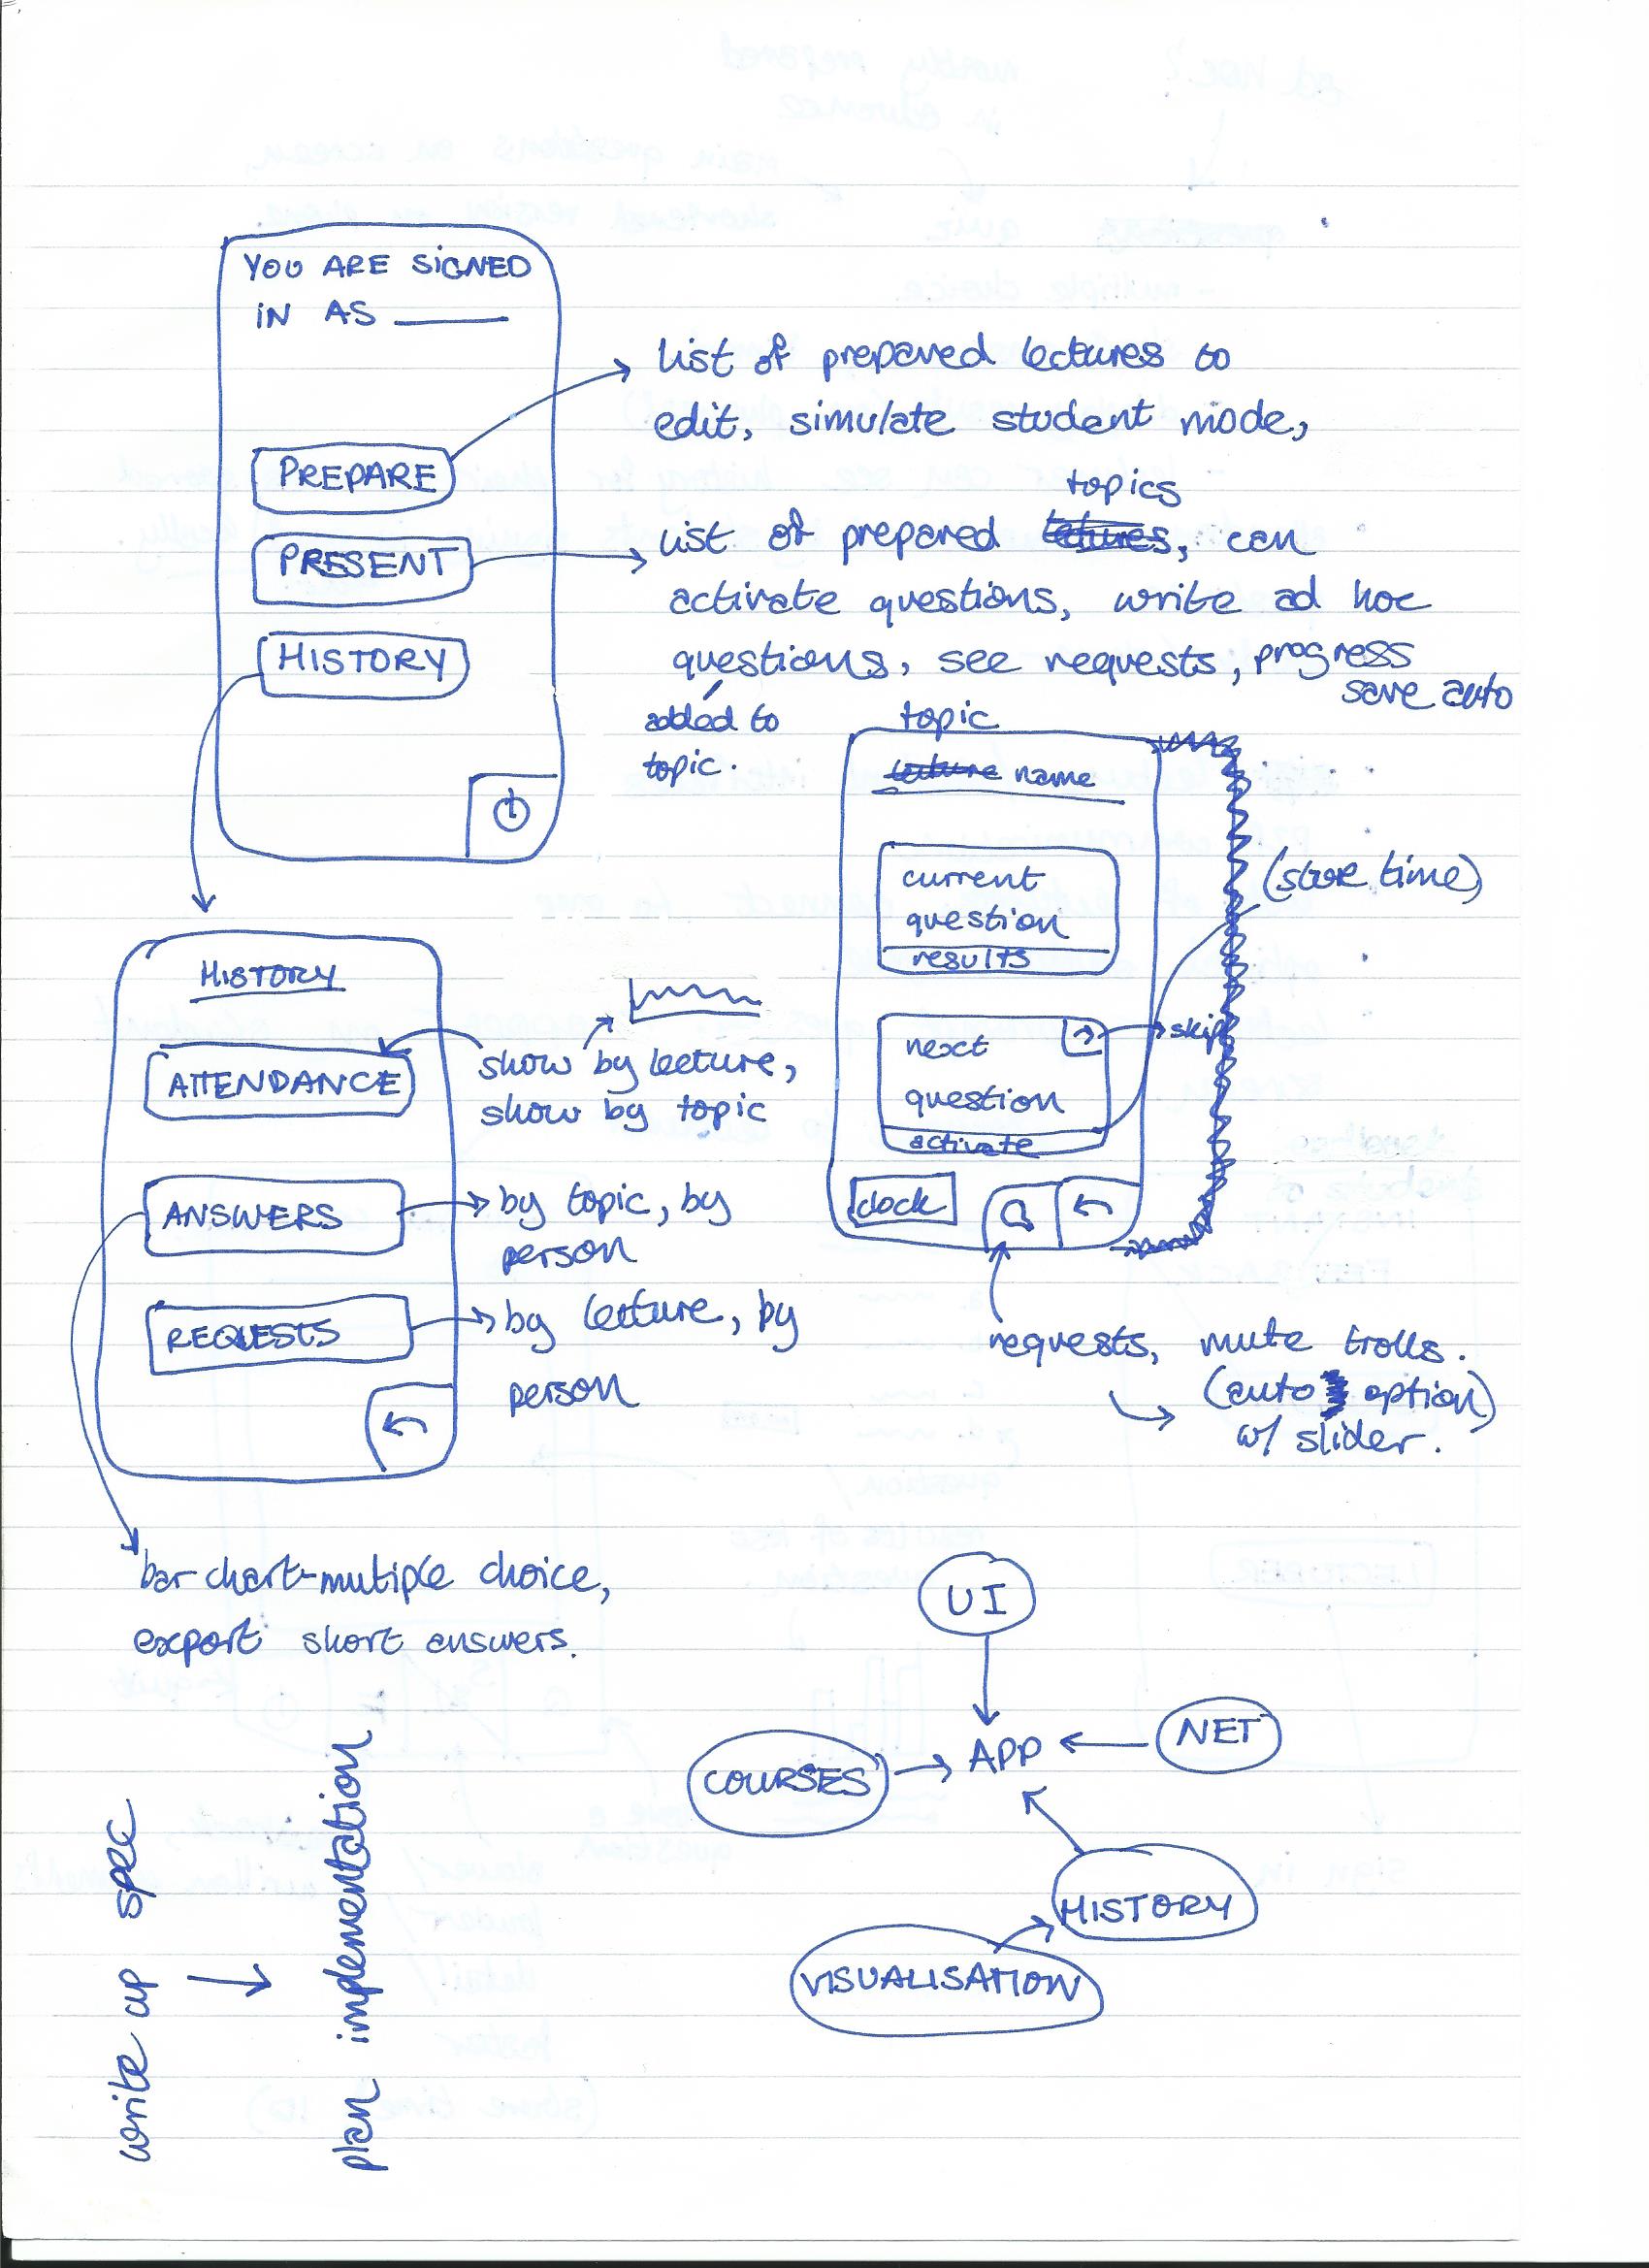 YOU ARE SIGNED
IN AS
PREPARE
PRESENT
HISTORY
list of prepared lectures to
edit, simulate student mode,
topics
list of prepared lectures, can
activate questions, write ad hoc
questions, see requests, progress
save auto
added to
topic.
topic
lecture name
current
question
results
(store time)
next
question
activate
skip
clock
Q
requests, mute trolls.
(auto option)
w/ slider.
HISTORY
ATTENDANCE
show by lecture,
show by topic
ANSWERS
by topic, by
person
REQUESTS
by lecture, by
person
bar chart-mutiple choice,
export short answers.
UI
APP
NET
COURSES
HISTORY
VISUALISATION
write up spec
plan implementation